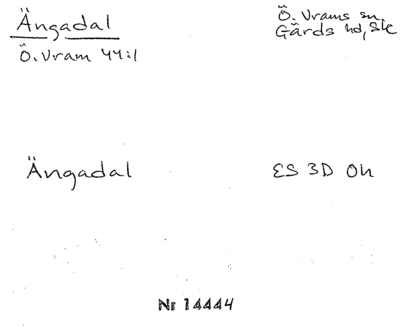 Ängadal
Ö. Vrams sn,
Gärds hd, Skå
Ö. Vram 44:1
Ängadal
ES 3D Oh
Nr 14444